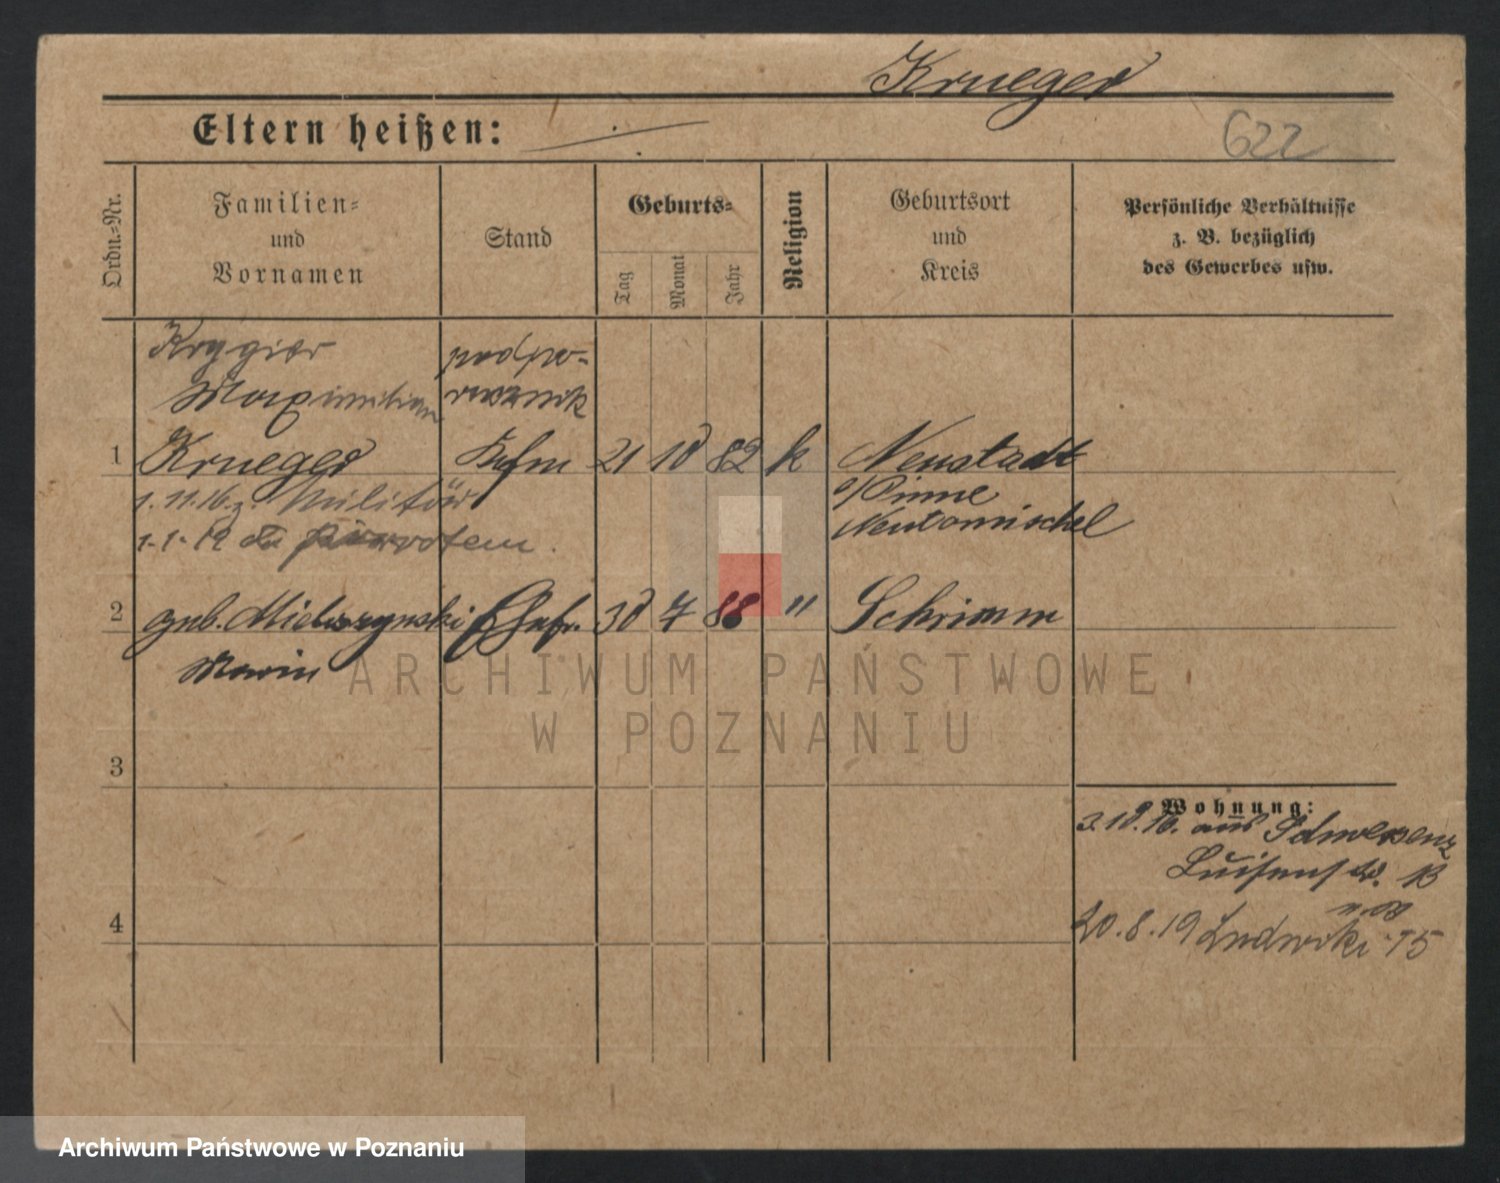 Krueger
Eltern heißen:
622
Ordn.-Nr.
Familien-
und
Vornamen
Stand
Geburts-
Tag
Monat
Jahr
Religion
Geburtsort
und
Kreis
Persönliche Verhältnisse
z. B. bezüglich
des Gewerbes usw.
Krygier podpo-
Maximilian rucznik
1 Krueger Kfm 21 10 82 k Neustadt
1.11.16 z. Militär
b/Pinne
Neutomischel
1.1.19
2 geb. Mielszynski Ehefr. 30 7 88 " Schrimm
Marie
ARCHIWUM PAŃSTWOWE
W POZNANIU
3
Wohnung:
3.10.16. aus Schwersenz
Luisenstr. 13
4
20.8.19 Ludwiki 15
Archiwum Państwowe w Poznaniu